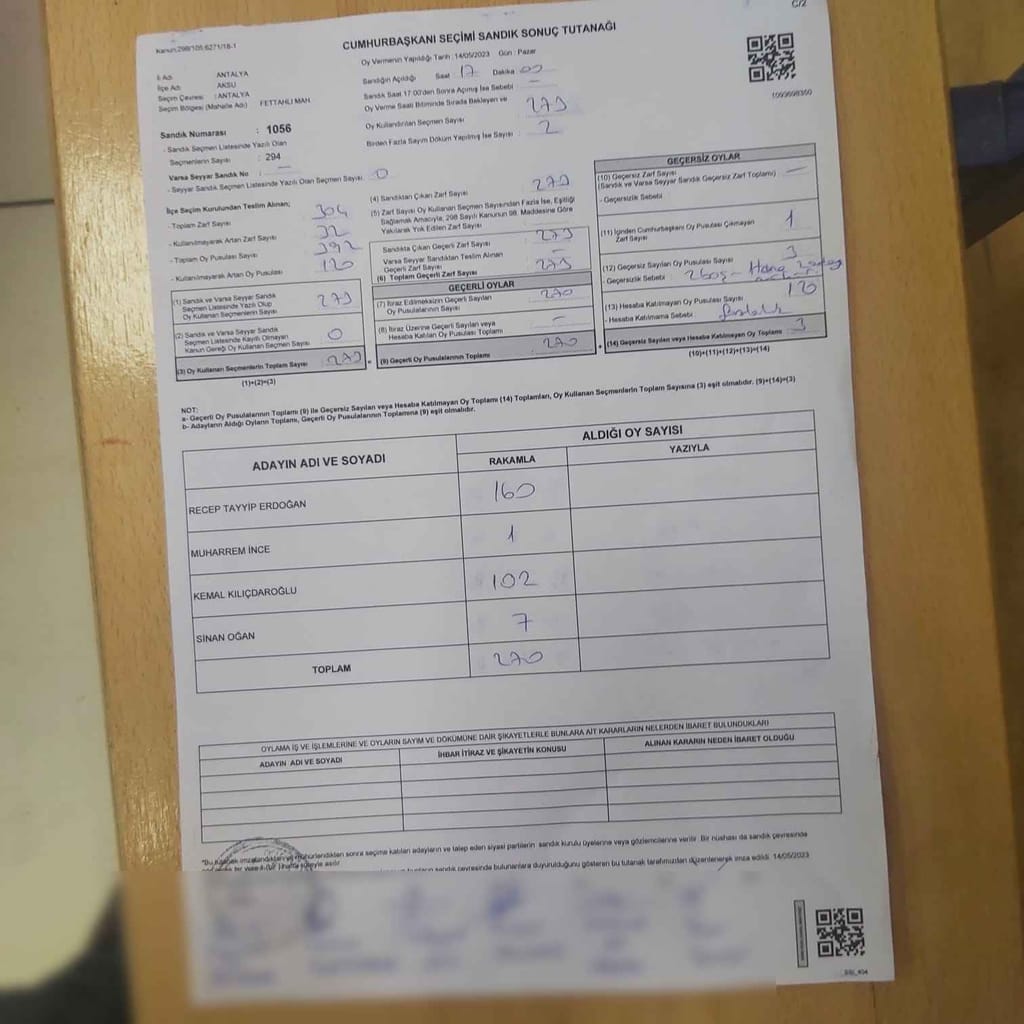 C/2
Kanun:298/105;6271/18-1
CUMHURBAŞKANI SEÇİMİ SANDIK SONUÇ TUTANAĞI
Oy Vermenin Yapıldığı Tarih :14/05/2023 Gün : Pazar
İl Adı : ANTALYA
İlçe Adı : AKSU
Seçim Çevresi : ANTALYA
Seçim Bölgesi (Mahalle Adı) FETTAHLI MAH
Sandığın Açıldığı Saat 17 Dakika 00
Sandık Saat 17:00'den Sonra Açımış İse Sebebi —
Oy Verme Saati Bitiminde Sırada Bekleyen ve
Oy Kullandırılan Seçmen Sayısı : 273
Birden Fazla Sayım Döküm Yapılmış İse Sayısı : 2
1093698360
Sandık Numarası : 1056
- Sandık Seçmen Listesinde Yazılı Olan
Seçmenlerin Sayısı : 294
Varsa Seyyar Sandık No : —
- Seyyar Sandık Seçmen Listesinde Yazılı Olan Seçmen Sayısı : 0
İlçe Seçim Kurulundan Teslim Alınan;
- Toplam Zarf Sayısı : 304
- Kullanılmayarak Artan Zarf Sayısı : 32
- Toplam Oy Pusulası Sayısı : 392
- Kullanılmayarak Artan Oy Pusulası : 120
(1) Sandık ve Varsa Seyyar Sandık
Seçmen Listesinde Yazılı Olup
Oy Kullanan Seçmenlerin Sayısı : 273
(2) Sandık ve Varsa Seyyar Sandık
Seçmen Listesinde Kayıtlı Olmayan
Kanun Gereği Oy Kullanan Seçmen Sayısı : 0
(3) Oy Kullanan Seçmenlerin Toplam Sayısı : 273
(1)+(2)=(3)
(4) Sandıktan Çıkan Zarf Sayısı : 273
(5) Zarf Sayısı Oy Kullanan Seçmen Sayısından Fazla İse, Eşitliği
Sağlamak Amacıyla, 298 Sayılı Kanunun 98. Maddesine Göre
Yakılarak Yok Edilen Zarf Sayısı : —
Sandıkta Çıkan Geçerli Zarf Sayısı : 273
Varsa Seyyar Sandıktan Teslim Alınan
Geçerli Zarf Sayısı : —
(6) Toplam Geçerli Zarf Sayısı : 273
GEÇERLİ OYLAR
(7) İtiraz Edilmeksizin Geçerli Sayılan
Oy Pusulasının Sayısı : 270
(8) İtiraz Üzerine Geçerli Sayılan veya
Hesaba Katılan Oy Pusulası Toplamı : —
(9) Geçerli Oy Pusulalarının Toplamı : 270
GEÇERSİZ OYLAR
(10) Geçersiz Zarf Sayısı
(Sandık ve Varsa Seyyar Sandık Geçersiz Zarf Toplamı) : —
- Geçersizlik Sebebi :
(11) İçinden Cumhurbaşkanı Oy Pusulası Çıkmayan
Zarf Sayısı : 1
(12) Geçersiz Sayılan Oy Pusulası Sayısı : 3
- Geçersizlik Sebebi : 2 boş -
(13) Hesaba Katılmayan Oy Pusulası Sayısı : 120
- Hesaba Katılmama Sebebi :
(14) Geçersiz Sayılan veya Hesaba Katılmayan Oy Toplamı : 3
(10)+(11)+(12)+(13)=(14)
NOT:
a- Geçerli Oy Pusulalarının Toplamı (9) ile Geçersiz Sayılan veya Hesaba Katılmayan Oy Toplamı (14) Toplamları, Oy Kullanan Seçmenlerin Toplam Sayısına (3) eşit olmalıdır. (9)+(14)=(3)
b- Adayların Aldığı Oyların Toplamı, Geçerli Oy Pusulalarının Toplamına (9) eşit olmalıdır.
ADAYIN ADI VE SOYADI
ALDIĞI OY SAYISI
RAKAMLA YAZIYLA
RECEP TAYYİP ERDOĞAN 160
MUHARREM İNCE 1
KEMAL KILIÇDAROĞLU 102
SİNAN OĞAN 7
TOPLAM 270
OYLAMA İŞ VE İŞLEMLERİNE VE OYLARIN SAYIM VE DÖKÜMÜNE DAİR ŞİKAYETLERLE BUNLARA AİT KARARLARIN NELERDEN İBARET BULUNDUKLARI
ADAYIN ADI VE SOYADI İHBAR İTİRAZ VE ŞİKAYETİN KONUSU ALINAN KARARIN NEDEN İBARET OLDUĞU
*Bu tutanak imzalandıktan ve mühürlendikten sonra seçime katılan adayların ve talep eden siyasi partilerin sandık kurulu üyelerine veya gözlemcilerine verilir. Bir nüshası da sandık çevresinde
sandık çevresinde bulunanlara duyurulduğunu gösteren bu tutanak tarafımızdan düzenlenerek imza edildi. 14/05/2023